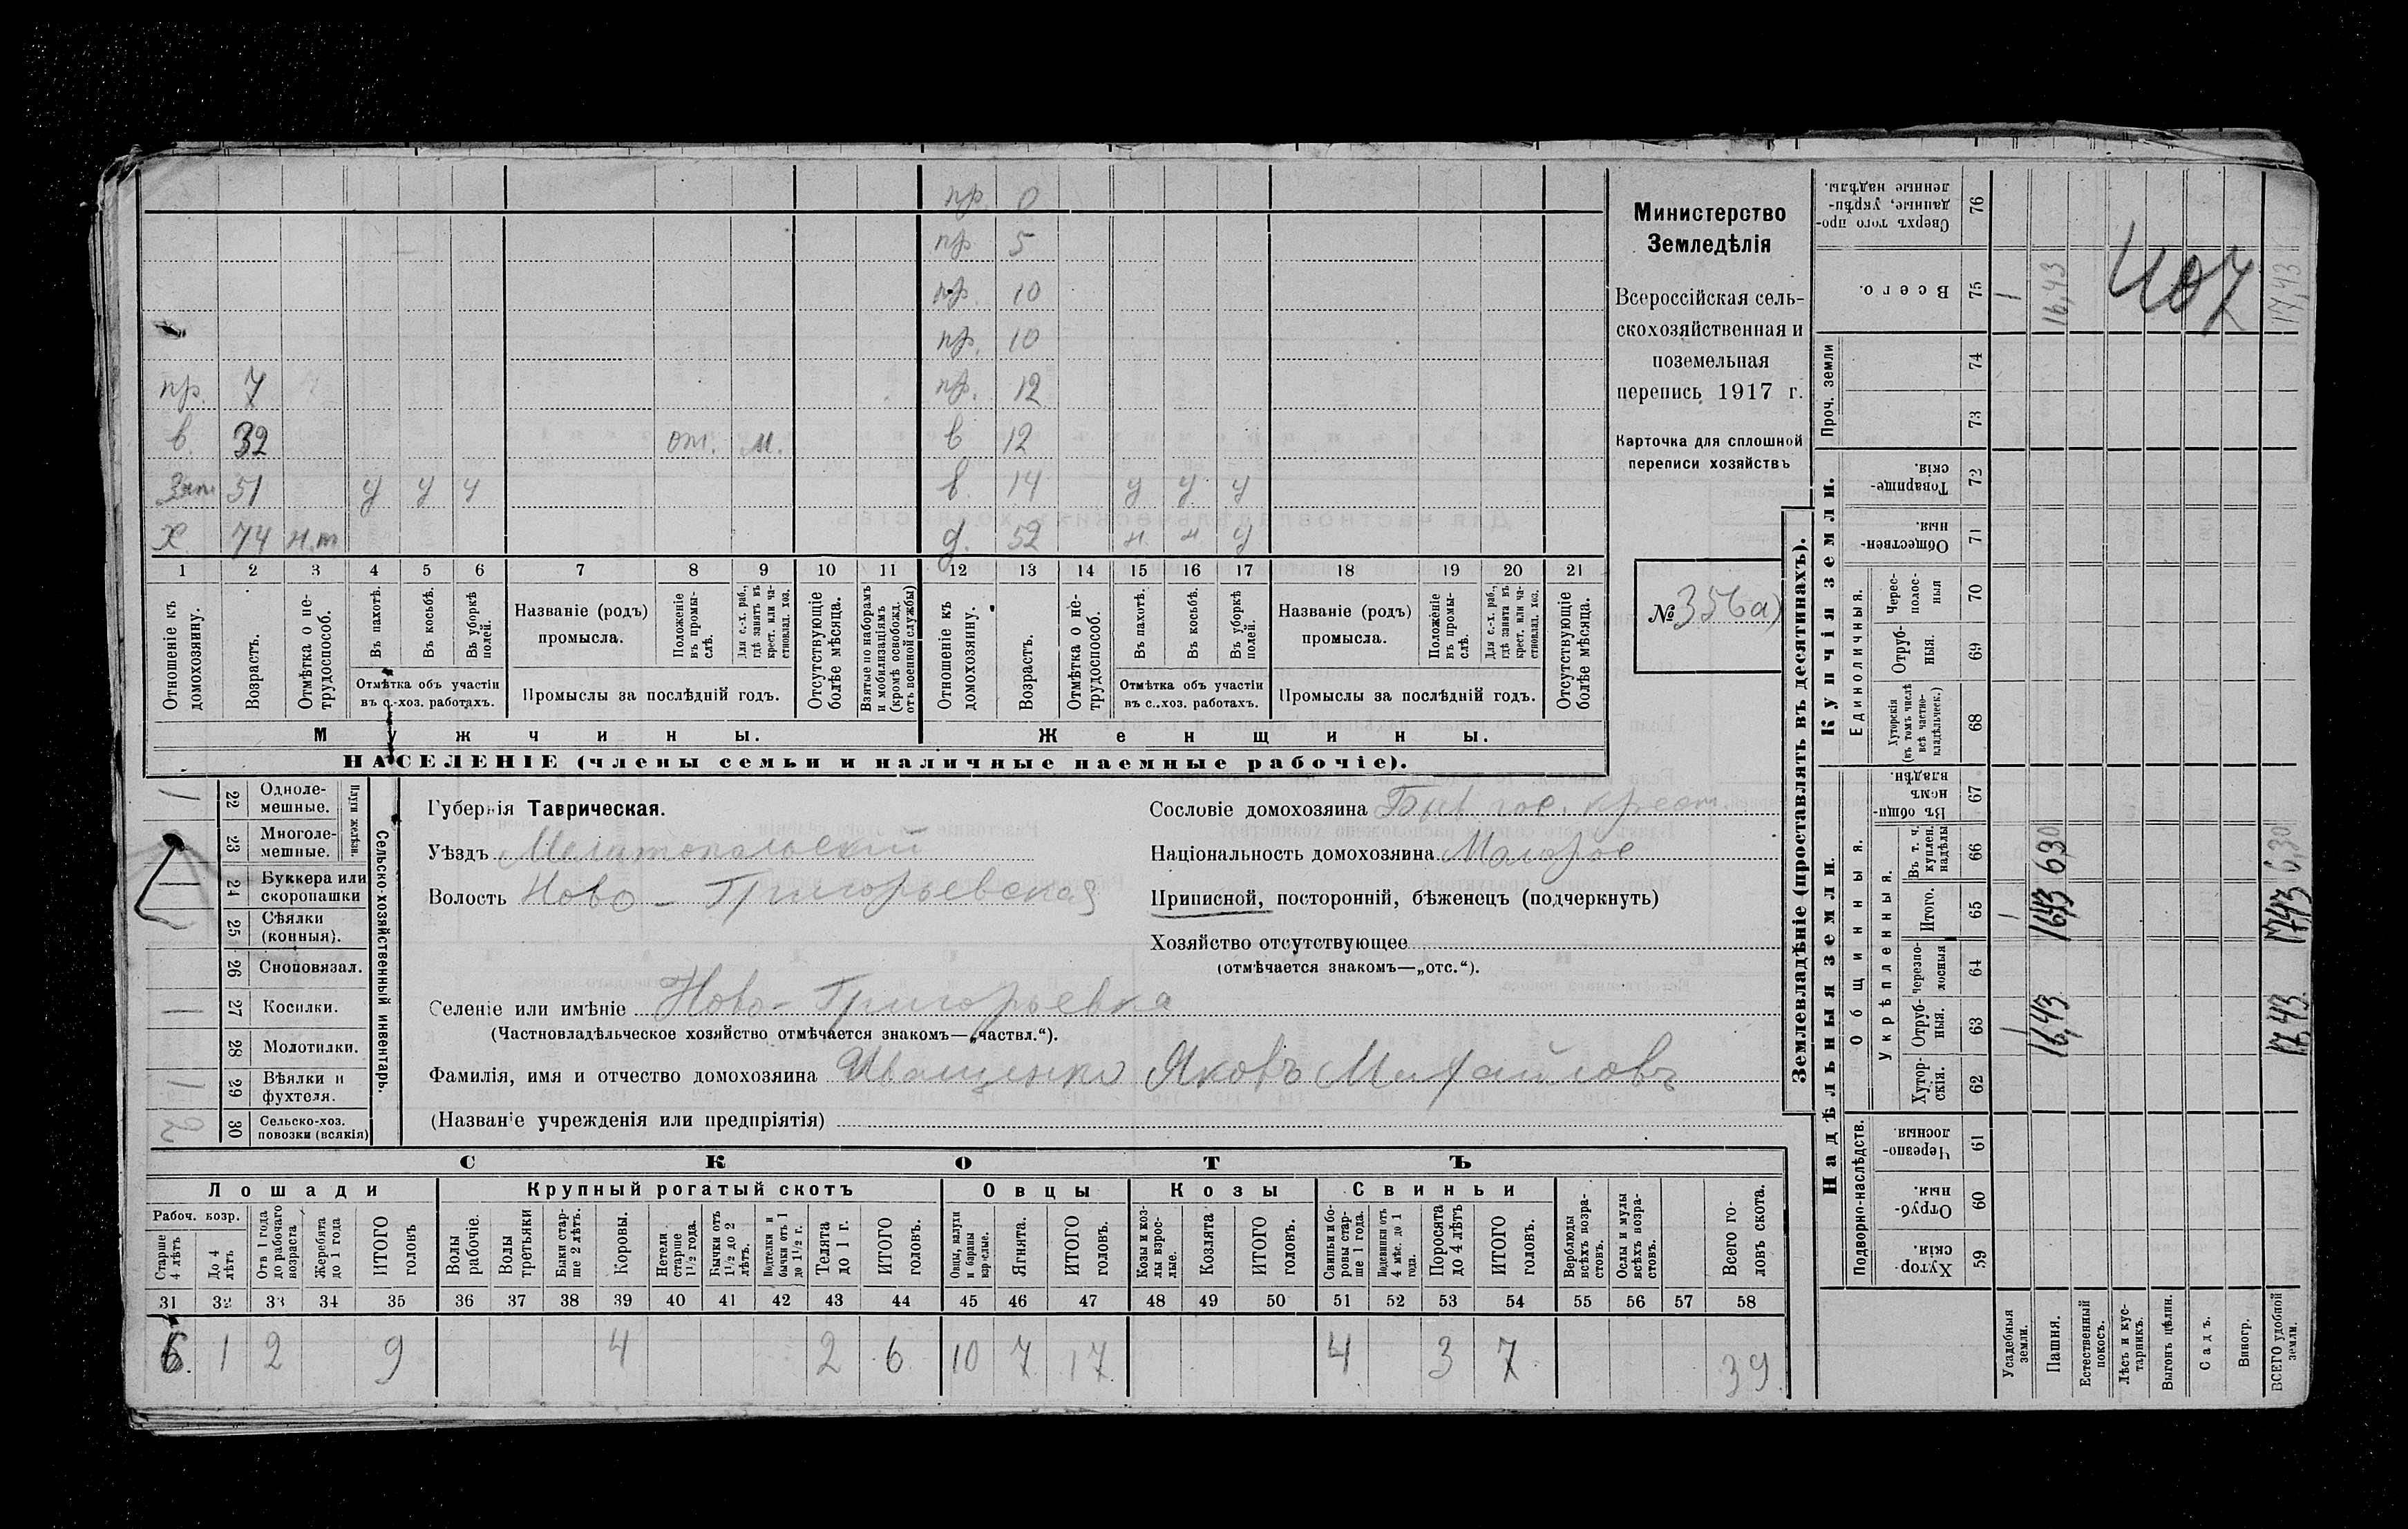 пр. 0
пр 5
пр. 10
пр. 10
пр. 7 пр. 12
в. 32 от. м. в 12
Зят 51 у у у в. 14 у у у
Х 74 н.т д. 52 н н у
1 2 3 4 5 6 7 8 9 10 11 12 13 14 15 16 17 18 19 20 21
Отношеніе къ домохозяину.
Возрастъ.
Отмѣтка о не-трудоспособ.
Въ пахотѣ.
Въ косьбѣ.
Въ уборкѣ полей.
Отмѣтка объ участіи
въ с.-хоз. работахъ.
Названіе (родъ)
промысла.
Положеніе въ промы-слѣ.
Для с.-х. раб., гдѣ занятъ въ крест. или ча-стновлад. хоз.
Промыслы за послѣдній годъ.
Отсутствующіе болѣе мѣсяца.
Взятые по наборамъ и мобилизаціямъ (кромѣ освобожд. отъ военной службы)
Отношеніе къ домохозяину.
Возрастъ.
Отмѣтка о не-трудоспособ.
Въ пахотѣ.
Въ косьбѣ.
Въ уборкѣ полей.
Отмѣтка объ участіи
въ с.-хоз. работахъ.
Названіе (родъ)
промысла.
Положеніе въ промы-слѣ.
Для с.-х. раб., гдѣ занята въ крест. или ча-стновлад. хоз.
Промыслы за послѣдній годъ.
Отсутствующіе болѣе мѣсяца.
Мужчины.
Женщины.
НАСЕЛЕНІЕ (члены семьи и наличные наемные рабочіе).
Министерство
Земледѣлія
Всероссійская сель-
скохозяйственная и
поземельная
перепись 1917 г.
Карточка для сплошной
переписи хозяйствъ
№ 356а)
1 22 Одноле-мешные.
23 Многоле-мешные.
Плуги желѣзн.
1 24 Буккера или скоропашки
1 25 Сѣялки (конныя).
26 Сноповязал.
1 27 Косилки.
28 Молотилки.
1 29 Вѣялки и фухтеля.
2 30 Сельско-хоз. повозки (всякія)
Сельско-хозяйственный инвентарь.
Губернія Таврическая.
Уѣздъ Мелитопольскій
Волость Ново-Григорьевская
Сословіе домохозяина Быв. гос. крест.
Національность домохозяина Малорос
Приписной, посторонній, бѣженецъ (подчеркнуть)
Хозяйство отсутствующее
(отмѣчается знакомъ—„отс.“).
Селеніе или имѣніе Ново-Григорьевка
(Частновладѣльческое хозяйство отмѣчается знакомъ—„частвл.“).
Фамилія, имя и отчество домохозяина Иващенко Яковъ Михайловъ
(Названіе учрежденія или предпріятія)
СКОТЪ
Лошади Крупный рогатый скотъ Овцы Козы Свиньи
Рабоч. возр.
Старше 4 лѣтъ
До 4 лѣтъ
Отъ 1 года до рабочаго возраста
Жеребята до 1 года
ИТОГО головъ
Волы рабочіе.
Волы третьяки
Быки стар-ше 2 лѣтъ.
Коровы.
Нетели старше 1½ года.
Бычки отъ 1½ до 2 лѣтъ.
Подтелки и бычки отъ 1 до 1½ г.
Телята до 1 г.
ИТОГО головъ.
Овцы, валухи и бараны взрослые.
Ягнята.
ИТОГО головъ.
Козы и коз-лы взрос-лые.
Козлята
ИТОГО головъ.
Свиньи и бо-ровы стар-ше 1 года.
Подсвинки отъ 4 мѣс. до 1 года.
Поросята до 4 лѣтъ
ИТОГО головъ.
Верблюды всѣхъ возра-стовъ.
Ослы и мулы всѣхъ возра-стовъ.
Всего го-ловъ скота.
31 32 33 34 35 36 37 38 39 40 41 42 43 44 45 46 47 48 49 50 51 52 53 54 55 56 57 58
6 1 2 9 4 2 6 10 7 17 4 3 7 39
Землевладѣніе (проставлять въ десятинахъ).
Купчія земли.
Надѣльныя земли.
Сверхъ того про-данные, укрѣп-ленные надѣлы. 76
Всего. 75 1 16,43 17,43
407
Проч. земли 74
73
Товарище-скія. 72
Обществен-ныя. 71
Единоличныя.
Черес-полос-ныя 70
Отруб-ныя. 69
Хуторскія (въ томъ числѣ всѣ частно-владѣльческ.) 68
Общинныя.
Въ общи-номъ владѣн. 67
Укрѣпленныя.
Въ т. ч. куплен. надѣлы 66 6,30 6,30
Итого. 65 1 16,43 17,43
Черезпо-лосныя 64
Отруб-ныя. 63 1 16,43 17,43
Хутор-скія. 62
Подворно-наслѣдств.
Черезпо-лосныя. 61
Отруб-ныя. 60
Хутор-скія. 59
Усадебныя земли.
Пашня.
Естественный покосъ.
Лѣсъ и кус-тарникъ.
Выгонъ цѣлин.
Садъ.
Виногр.
ВСЕГО удобной земли.